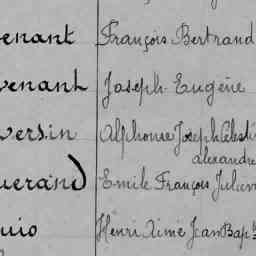 venant François Bertrand
venant Joseph Eugène
versin Alphonse Joseph Célesti
alexandre
uerand Emile François Julien
uio Henri Aimé Jean Bapt